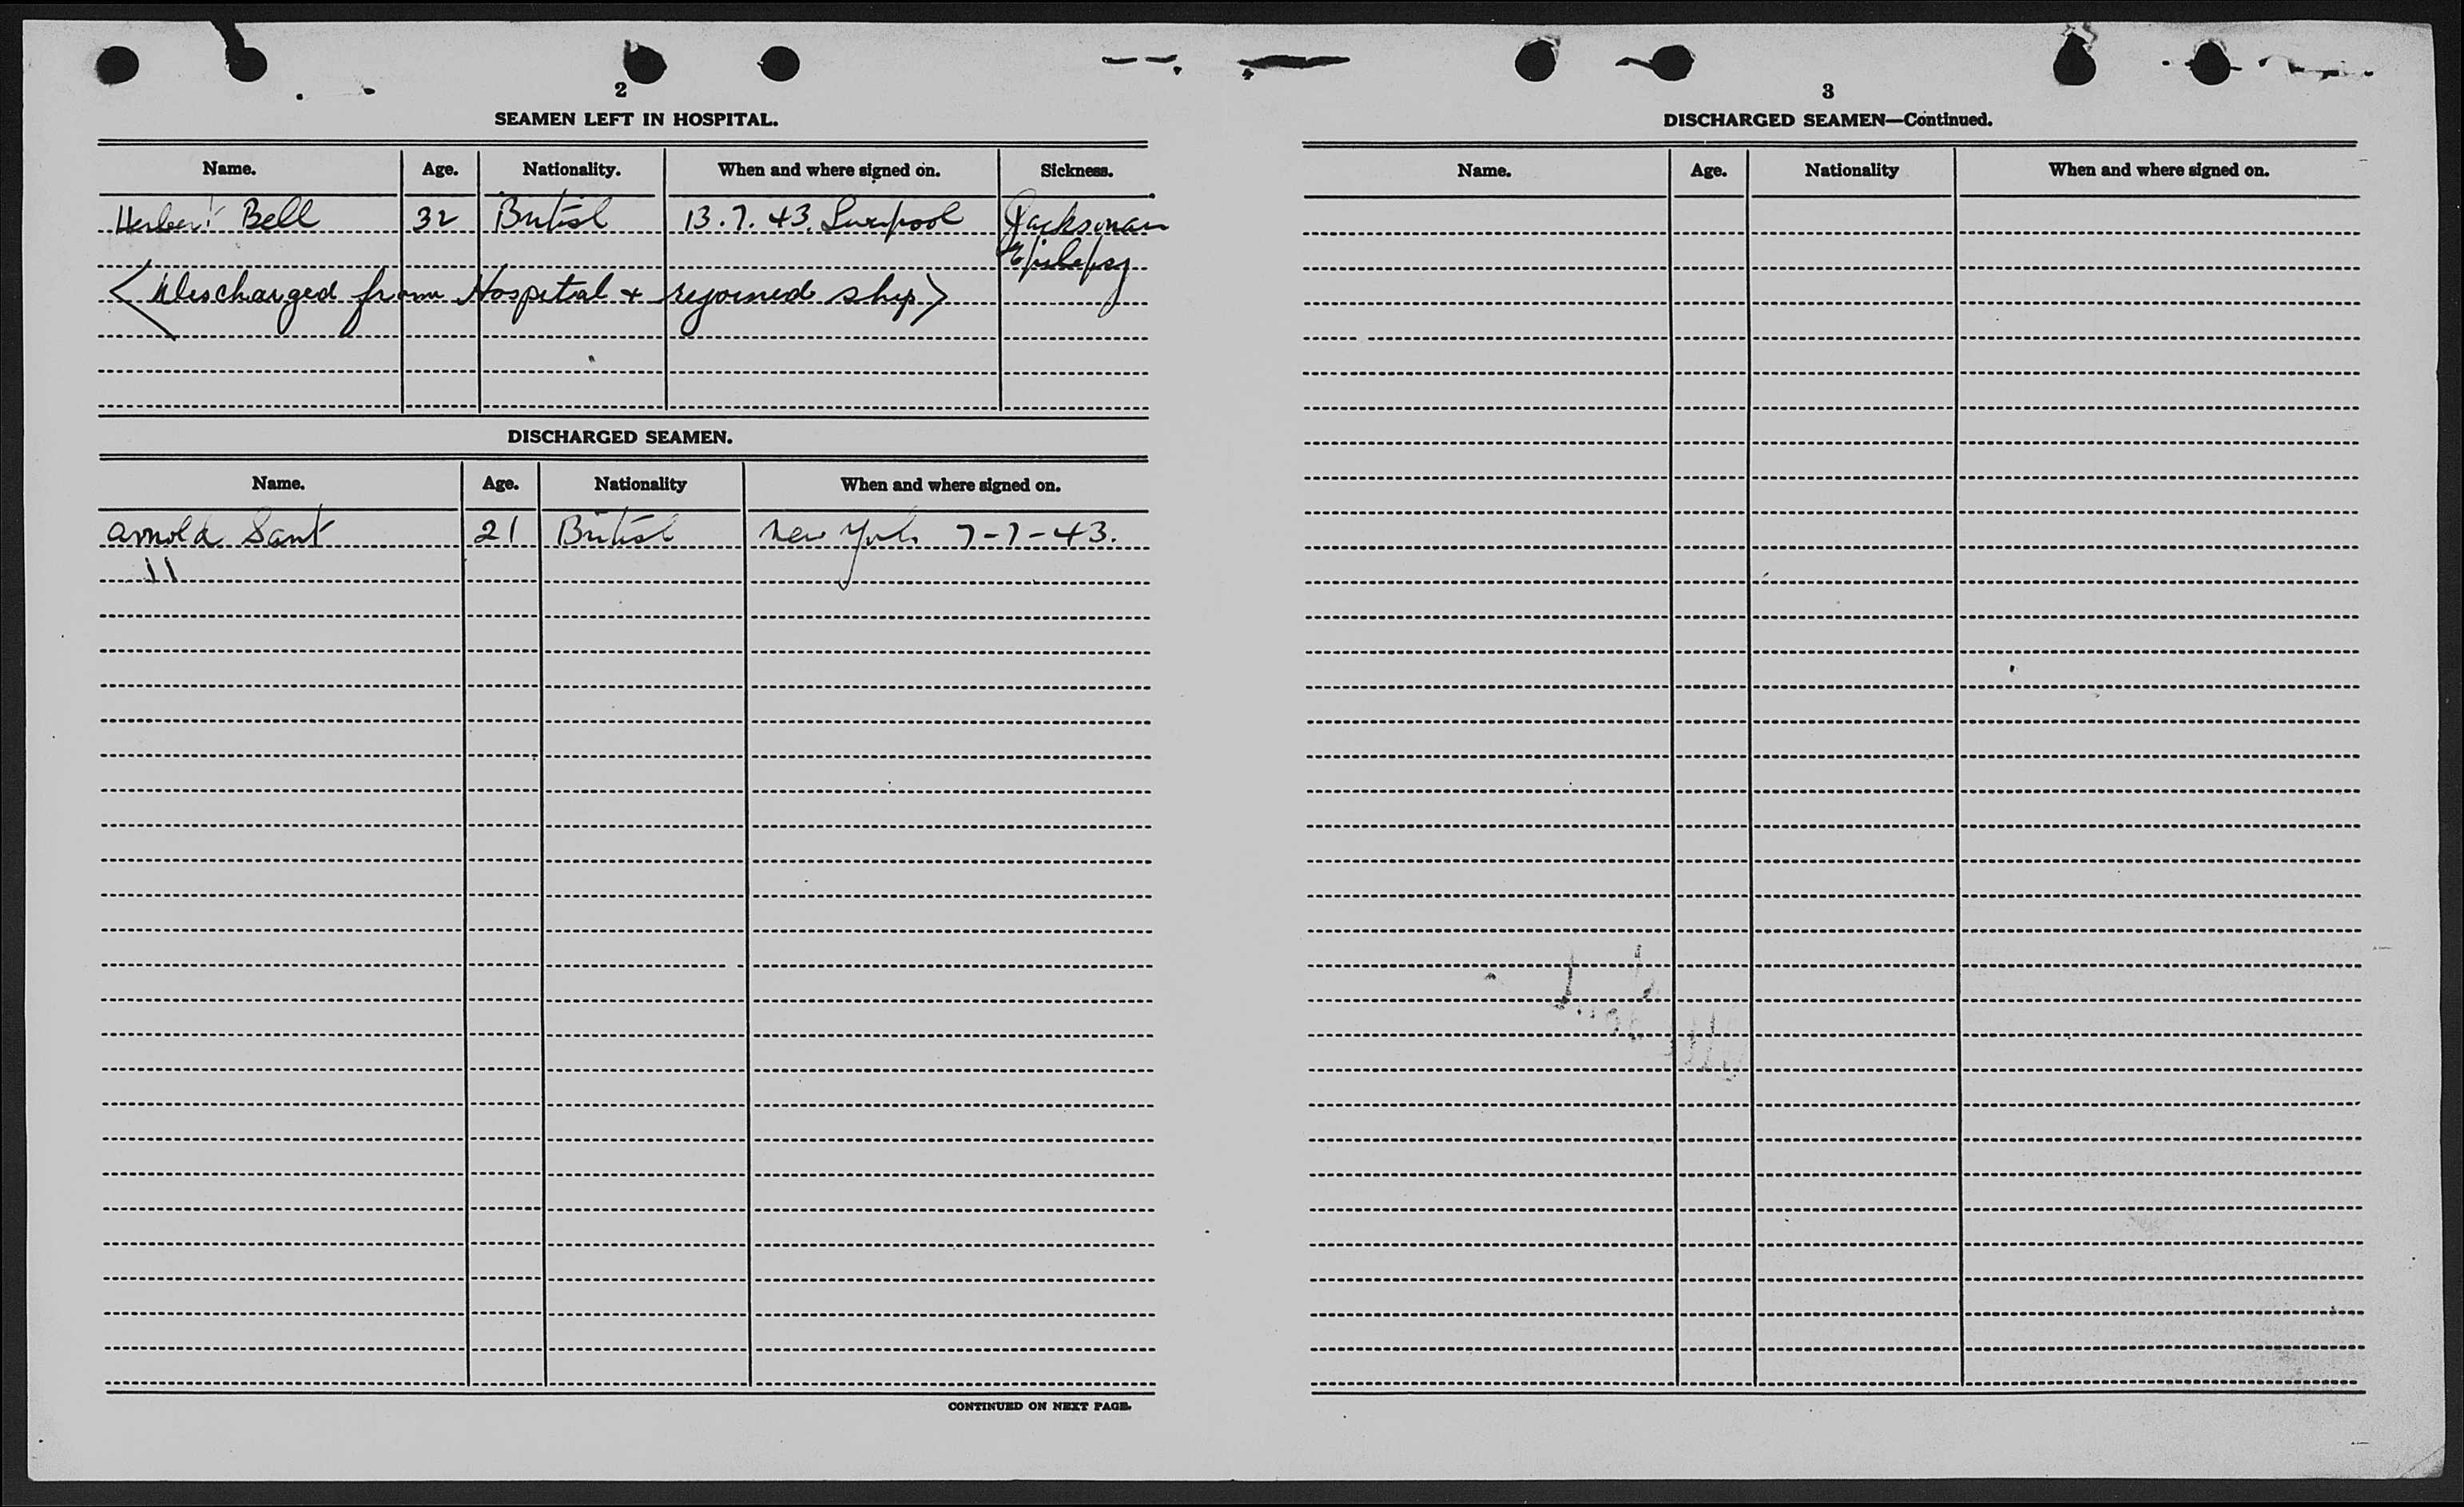 2
SEAMEN LEFT IN HOSPITAL.
Name. Age. Nationality. When and where signed on. Sickness.
Herbert Bell 32 British 13.7.43. Liverpool Jacksonian
Epilepsy
<Discharged from Hospital + rejoined ship>
DISCHARGED SEAMEN.
Name. Age. Nationality When and where signed on.
Arnold Sant 21 British New York 7-7-43.
11
CONTINUED ON NEXT PAGE.
3
DISCHARGED SEAMEN—Continued.
Name. Age. Nationality When and where signed on.